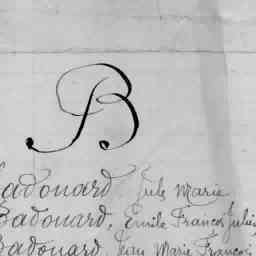 B
Badouard, Jules Marie
Badouard, Emile François Julien
Badouard, Jean Marie François